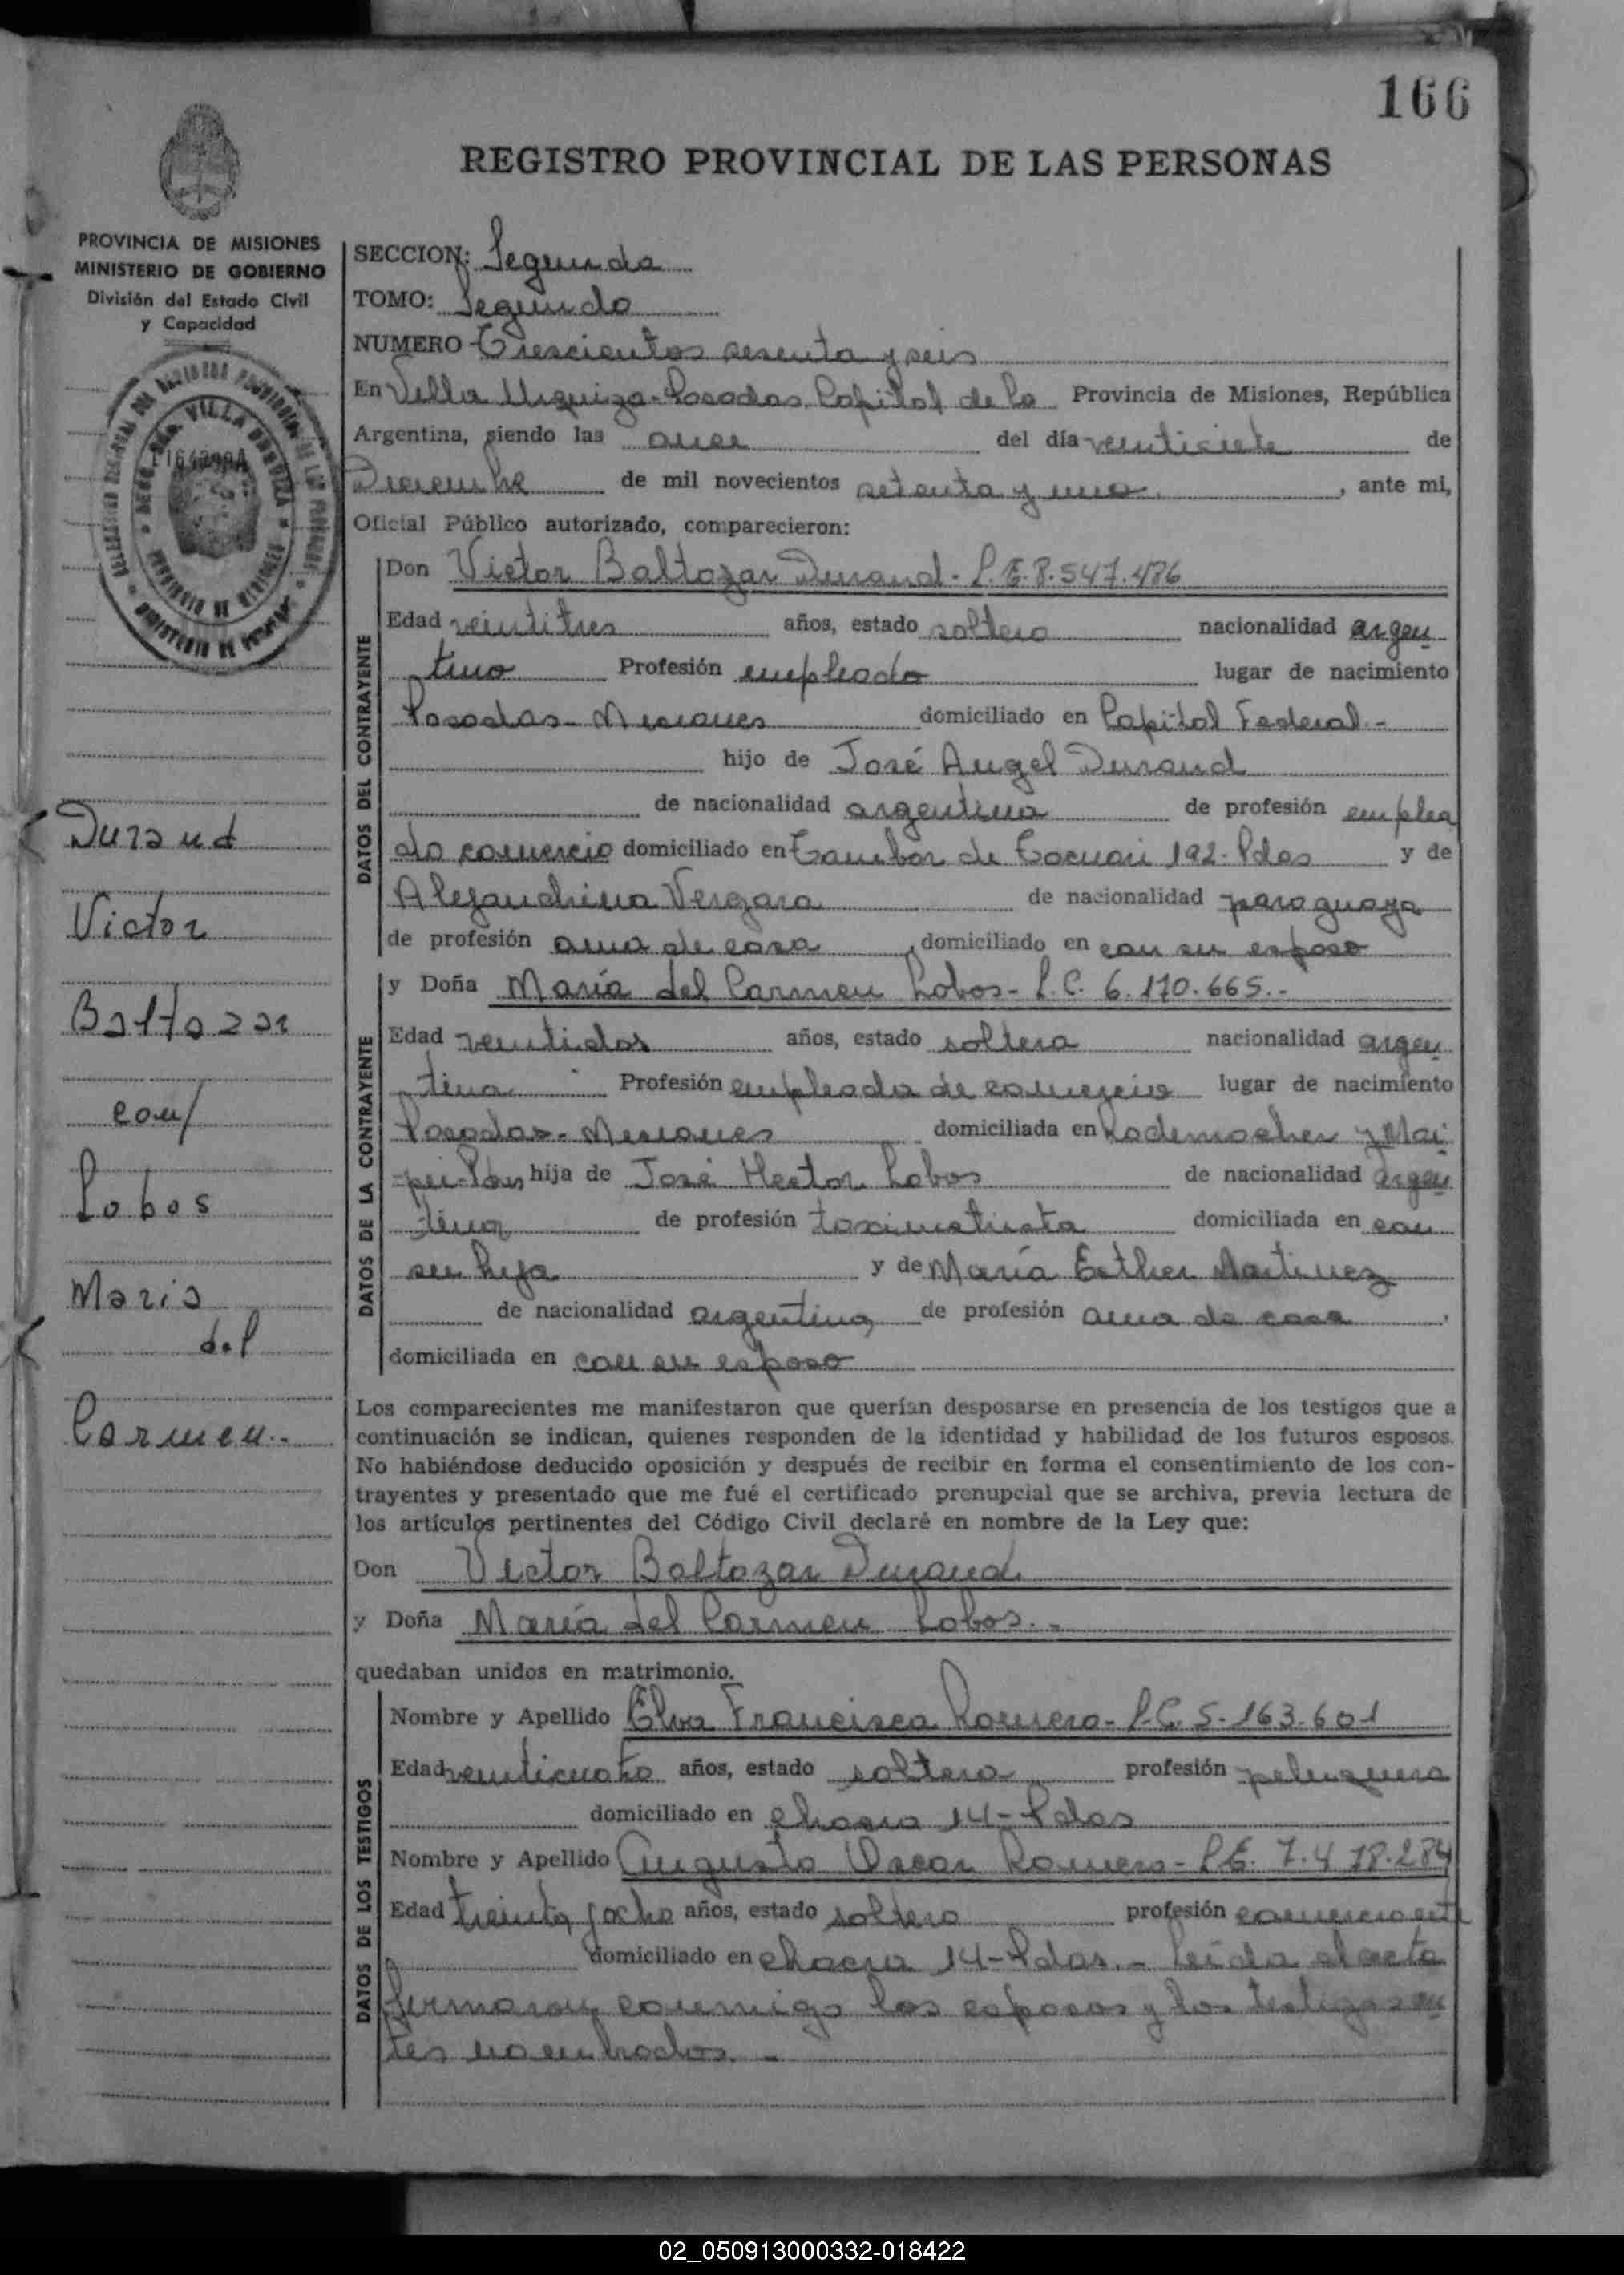 166
REGISTRO PROVINCIAL DE LAS PERSONAS
PROVINCIA DE MISIONES
MINISTERIO DE GOBIERNO
División del Estado Civil
y Capacidad
SECCION: Segunda
TOMO: Segundo
NUMERO Trescientos sesenta y seis
En Villa Urquiza-Posadas Capital de la Provincia de Misiones, República
Argentina, siendo las once del día veintisiete de
Diciembre de mil novecientos setenta y uno, ante mi,
Oficial Público autorizado, comparecieron:
DATOS DEL CONTRAYENTE
Don Victor Baltazar Durand - L.E. 8.547.486
Edad veintitres años, estado soltero nacionalidad argen
tino Profesión empleado lugar de nacimiento
Posadas - Misiones domiciliado en Capital Federal.-
hijo de José Angel Durand
de nacionalidad argentina de profesión emplea
do comercio domiciliado en Tambor de Tacuari 192 - Pdas y de
Alejandrina Vergara de nacionalidad paraguaya
de profesión ama de casa, domiciliado en con su esposo
DATOS DE LA CONTRAYENTE
y Doña María del Carmen Lobos - L.C. 6.170.665.-
Edad veintidos años, estado soltera nacionalidad argen
tina Profesión empleada de comercio lugar de nacimiento
Posadas - Misiones domiciliada en y Mai
hija de José Hector Lobos de nacionalidad argen
tina de profesión taximetrista domiciliada en con
su hija y de María Esther Martinez
de nacionalidad argentina de profesión ama de casa,
domiciliada en con su esposo
Los comparecientes me manifestaron que querían desposarse en presencia de los testigos que a
continuación se indican, quienes responden de la identidad y habilidad de los futuros esposos.
No habiéndose deducido oposición y después de recibir en forma el consentimiento de los con-
trayentes y presentado que me fué el certificado prenupcial que se archiva, previa lectura de
los artículos pertinentes del Código Civil declaré en nombre de la Ley que:
Don Victor Baltazar Durand
y Doña María del Carmen Lobos.-
quedaban unidos en matrimonio.
DATOS DE LOS TESTIGOS
Nombre y Apellido Elva Francisca Romero - L.C. 5.163.601
Edad veinticuatro años, estado soltera profesión peluquera
domiciliado en chacra 14 - Pdas
Nombre y Apellido Augusto Oscar Romero - L.E. 7.478.284
Edad treinta y ocho años, estado soltero profesión comerciante
domiciliado en chacra 14 - Pdas.- Leida el acta
firmaron conmigo los esposos y los testigos an
tes nombrados.-
Durand
Victor
Baltazar
con/
Lobos
Maria
del
Carmen.-
02_050913000332-018422